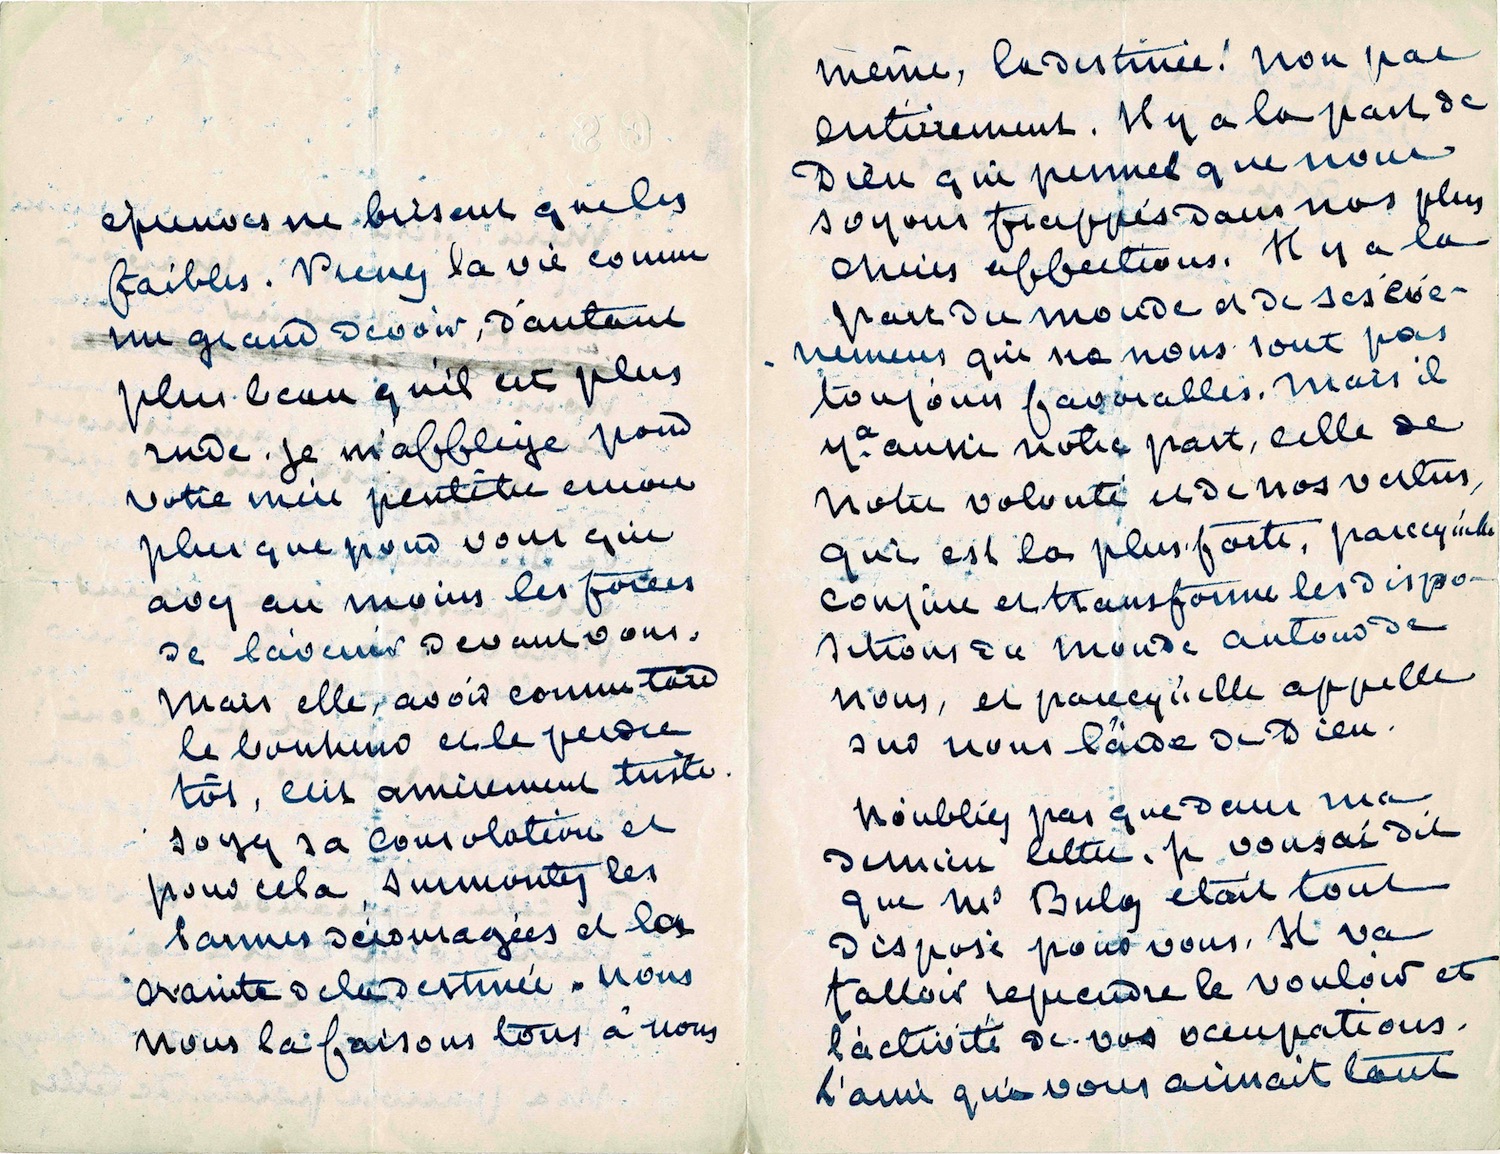 épreuves ne brisent que les
faibles. Preney la vie comme
un grand devoir, d'autant
plus beau qu'il est plus
rude. Je m'afflige pour
votre mère peutêtre encore
plus que pour vous qui
avey au moins les forces
de l'avenir devant vous.
Mais elle, avoir connu tard
le bonheur et le perdre
tôt, c'est amèrement triste.
Soyey sa consolation et
pour cela, surmontey les
larmes découragées et la
crainte de la destinée. Nous
nous la faisons tous à nous
même, la destinée! Non pas
entièrement. Il y a la part de
Dieu qui permet que nous
soyons frappés dans nos plus
chères affections. Il y a la
part du monde et de ses évé-
nemens qui ne nous sont pas
toujours favorables. Mais il
y a aussi notre part, celle de
notre volonté et de nos vertus,
qui est la plus forte, parcequ'elle
conjure et transforme les dispo-
sitions du monde autour de
nous, et parcequ'elle appelle
sur nous l'aide de Dieu.
N'oubliey pas que dans ma
dernière lettre, je vous ai dit
que Mr Buloz était tout
disposé pour vous. Il va
falloir reprendre le vouloir et
l'activité de vos occupations.
L'ami qui vous aimait tant